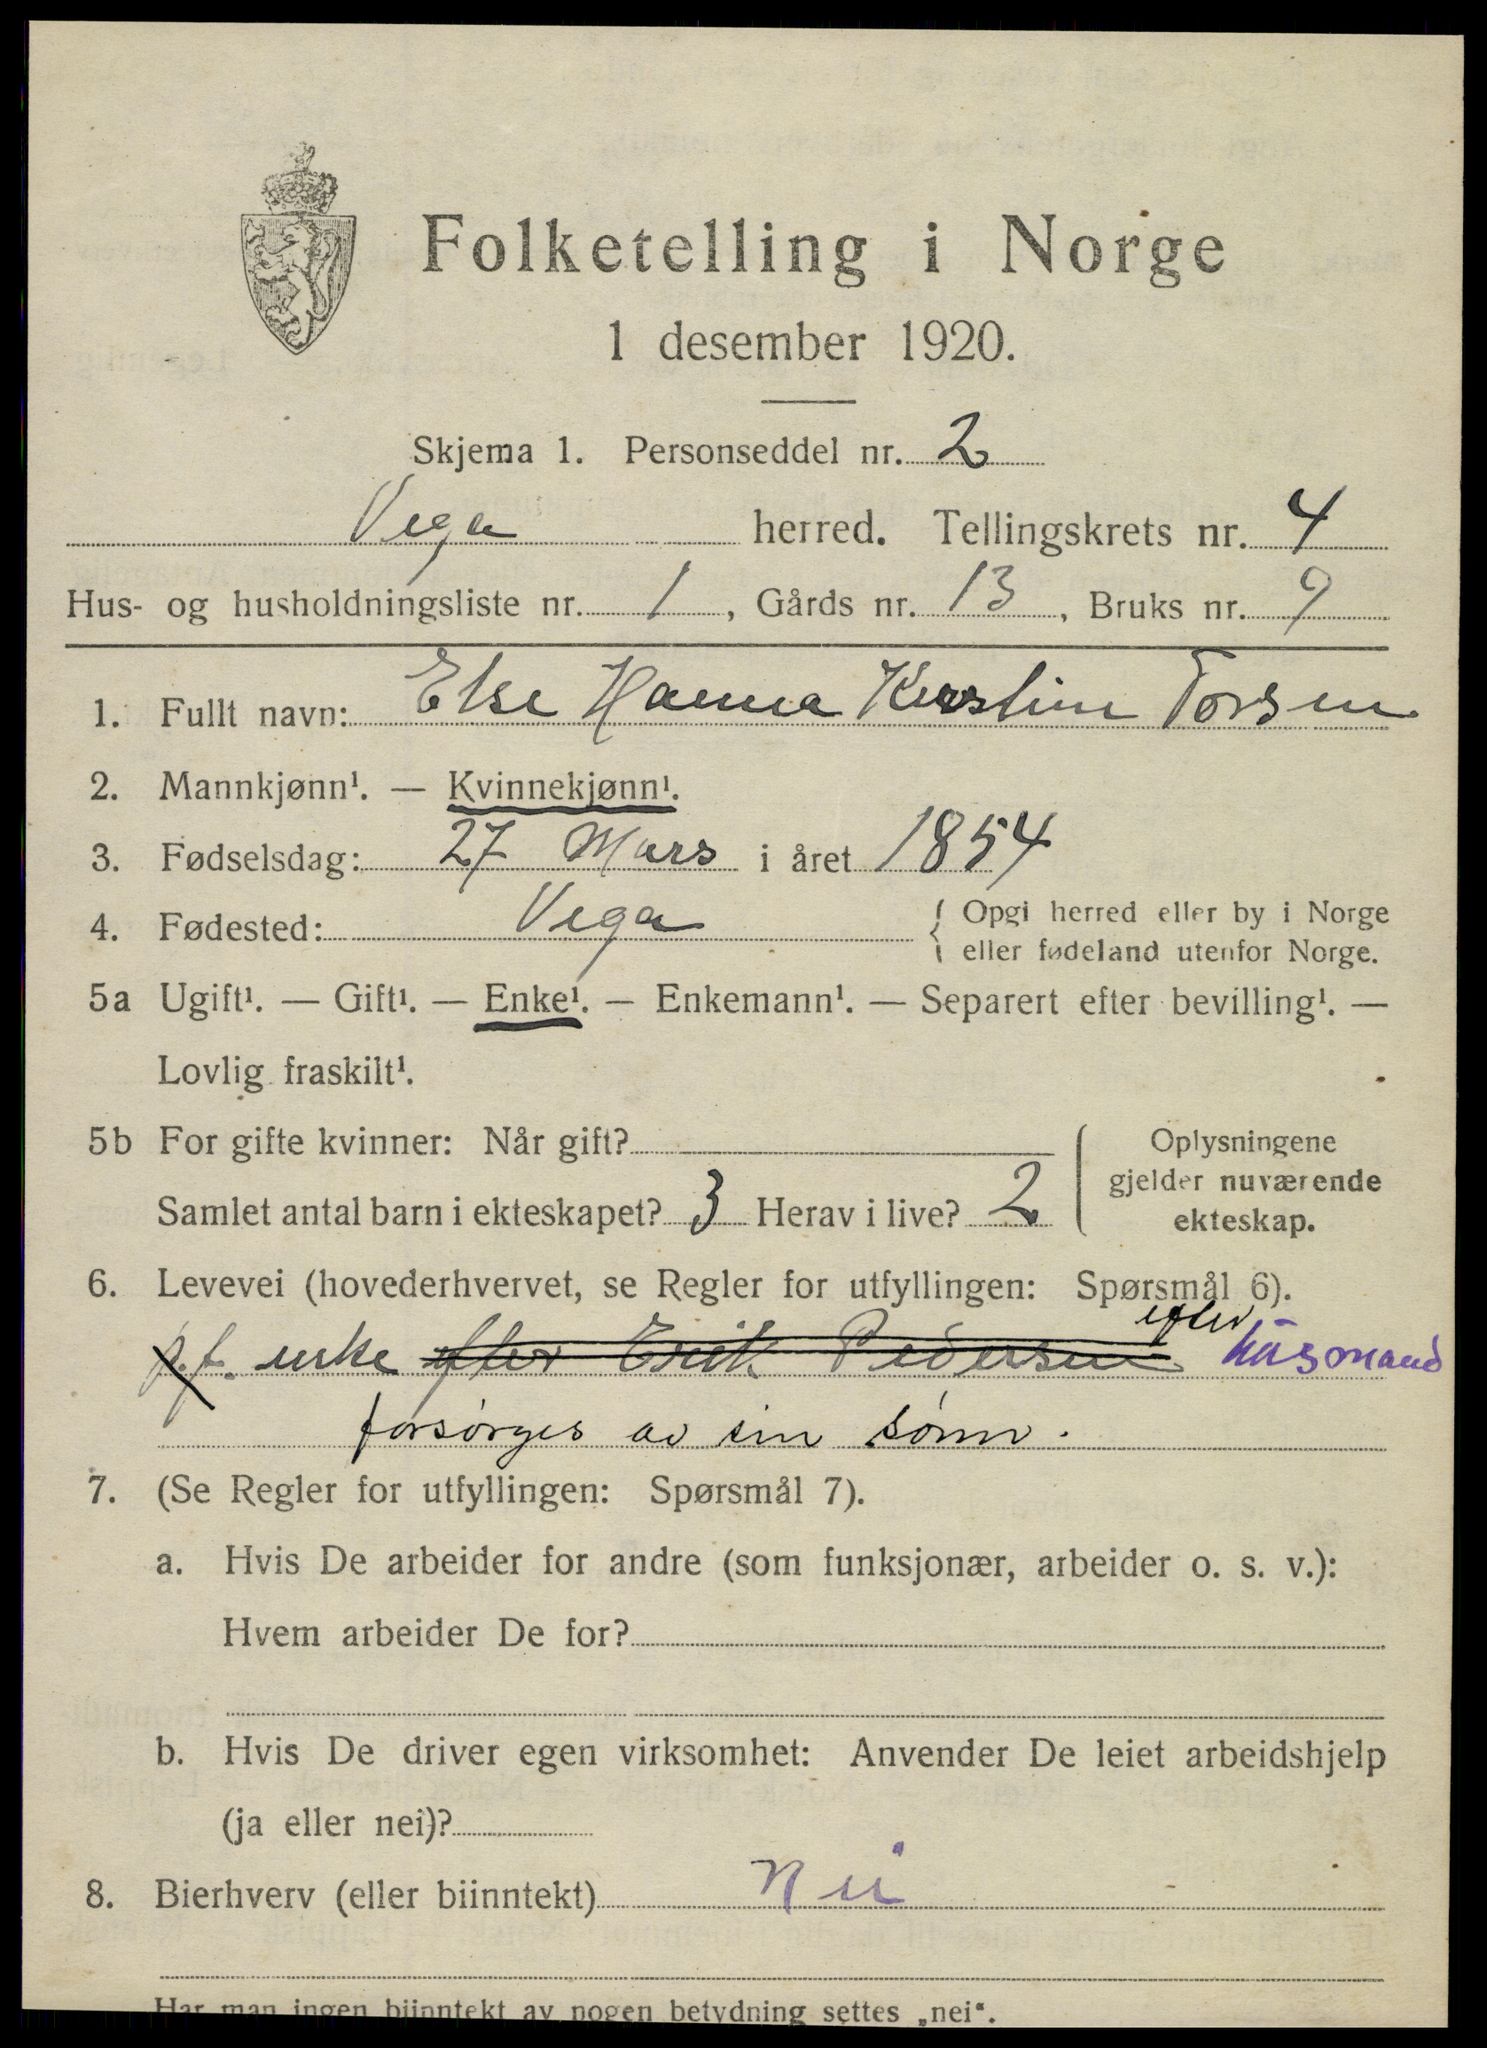 Folketelling i Norge
1 desember 1920.
Skjema 1. Personseddel nr. 2
Vega herred. Tellingskrets nr. 4
Hus- og husholdningsliste nr. 1, Gårds nr. 13, Bruks nr. 9
1. Fullt navn: Else Hanna Kirstine Torsen
2. Mannkjønn¹. — Kvinnekjønn¹.
3. Fødselsdag: 27 Mars i året 1854
4. Fødested: Vega { Opgi herred eller by i Norge
eller fødeland utenfor Norge.
5a Ugift¹. — Gift¹. — Enke¹. — Enkemann¹. — Separert efter bevilling¹. —
Lovlig fraskilt¹.
5b For gifte kvinner: Når gift?
Samlet antal barn i ekteskapet? 3 Herav i live? 2
Oplysningene
gjelder nuværende
ekteskap.
6. Levevei (hovederhvervet, se Regler for utfyllingen: Spørsmål 6).
p.f. enke efter Erik Pedersen efter husmand
forsørges av sin sønn.
7. (Se Regler for utfyllingen: Spørsmål 7).
a. Hvis De arbeider for andre (som funksjonær, arbeider o. s. v.):
Hvem arbeider De for?
b. Hvis De driver egen virksomhet: Anvender De leiet arbeidshjelp
(ja eller nei)?
8. Bierhverv (eller biinntekt) Nei
Har man ingen biinntekt av nogen betydning settes „nei“.